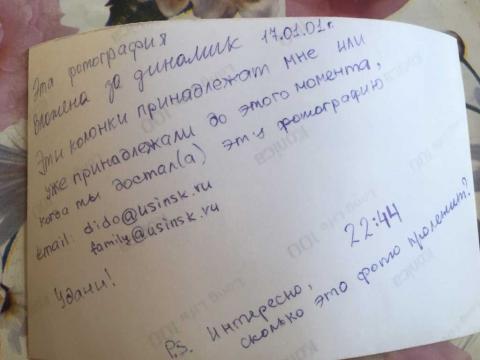 Эта фотография
вложена за динамик 17.01.01г.
Эти колонки принадлежат мне или
уже принадлежали до этого момента,
когда ты достал(а) эту фотографию
email: dido@usinsk.ru
family@usinsk.ru
22:44
Удачи!
P.S. Интересно,
сколько это фото пролежит?
Konica
Konica
Long Life 100